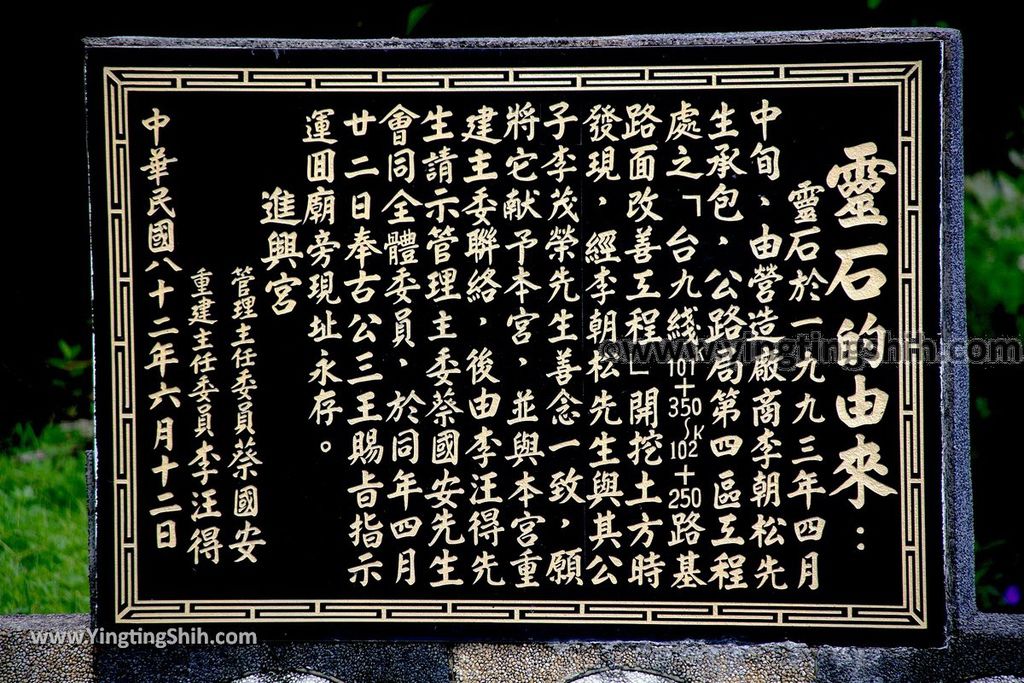 靈石的由來：
靈石於一九九三年四月
中旬、由營造廠商李朝松先
生承包，公路局第四區工程
處之「台九綫101+350~102+250路基
路面改善工程」開挖土方時
發現，經李朝松先生與其公
子李茂榮先生善念一致，願
將它献予本宮，並與本宮重
建主委聯絡，後由李汪得先
生請示管理主委蔡國安先生
會同全體委員，於同年四月
廿二日奉古公三王賜旨指示
運回廟旁現址永存。
進興宮
管理主任委員蔡國安
重建主任委員李汪得
中華民國八十二年六月十二日
www.YingtingShih.com
www.YingtingShih.com